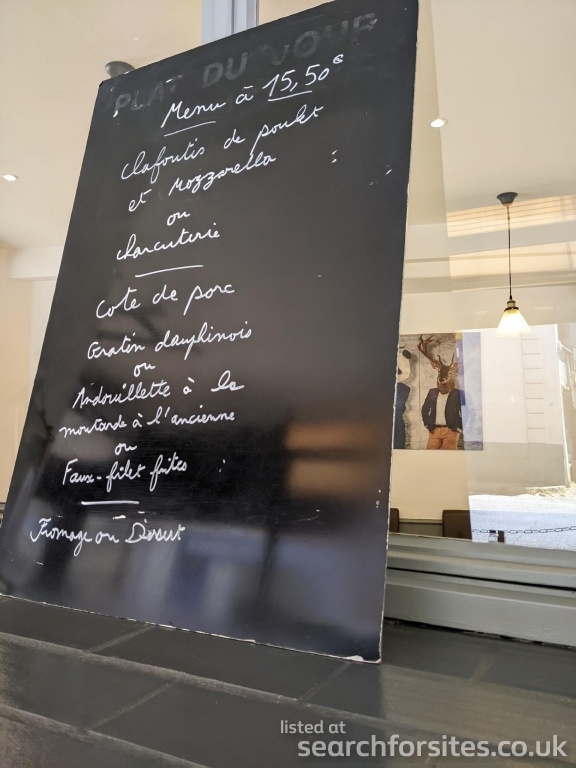 PLAT DU JOUR
Menu à 15,50€
Clafoutis de poulet
et Mozzarella
ou
charcuterie
Cote de porc
Gratin dauphinois
ou
Andouillette à la
moutarde à l'ancienne
ou
Faux-filet frites
Fromage ou Dessert
listed at
searchforsites.co.uk